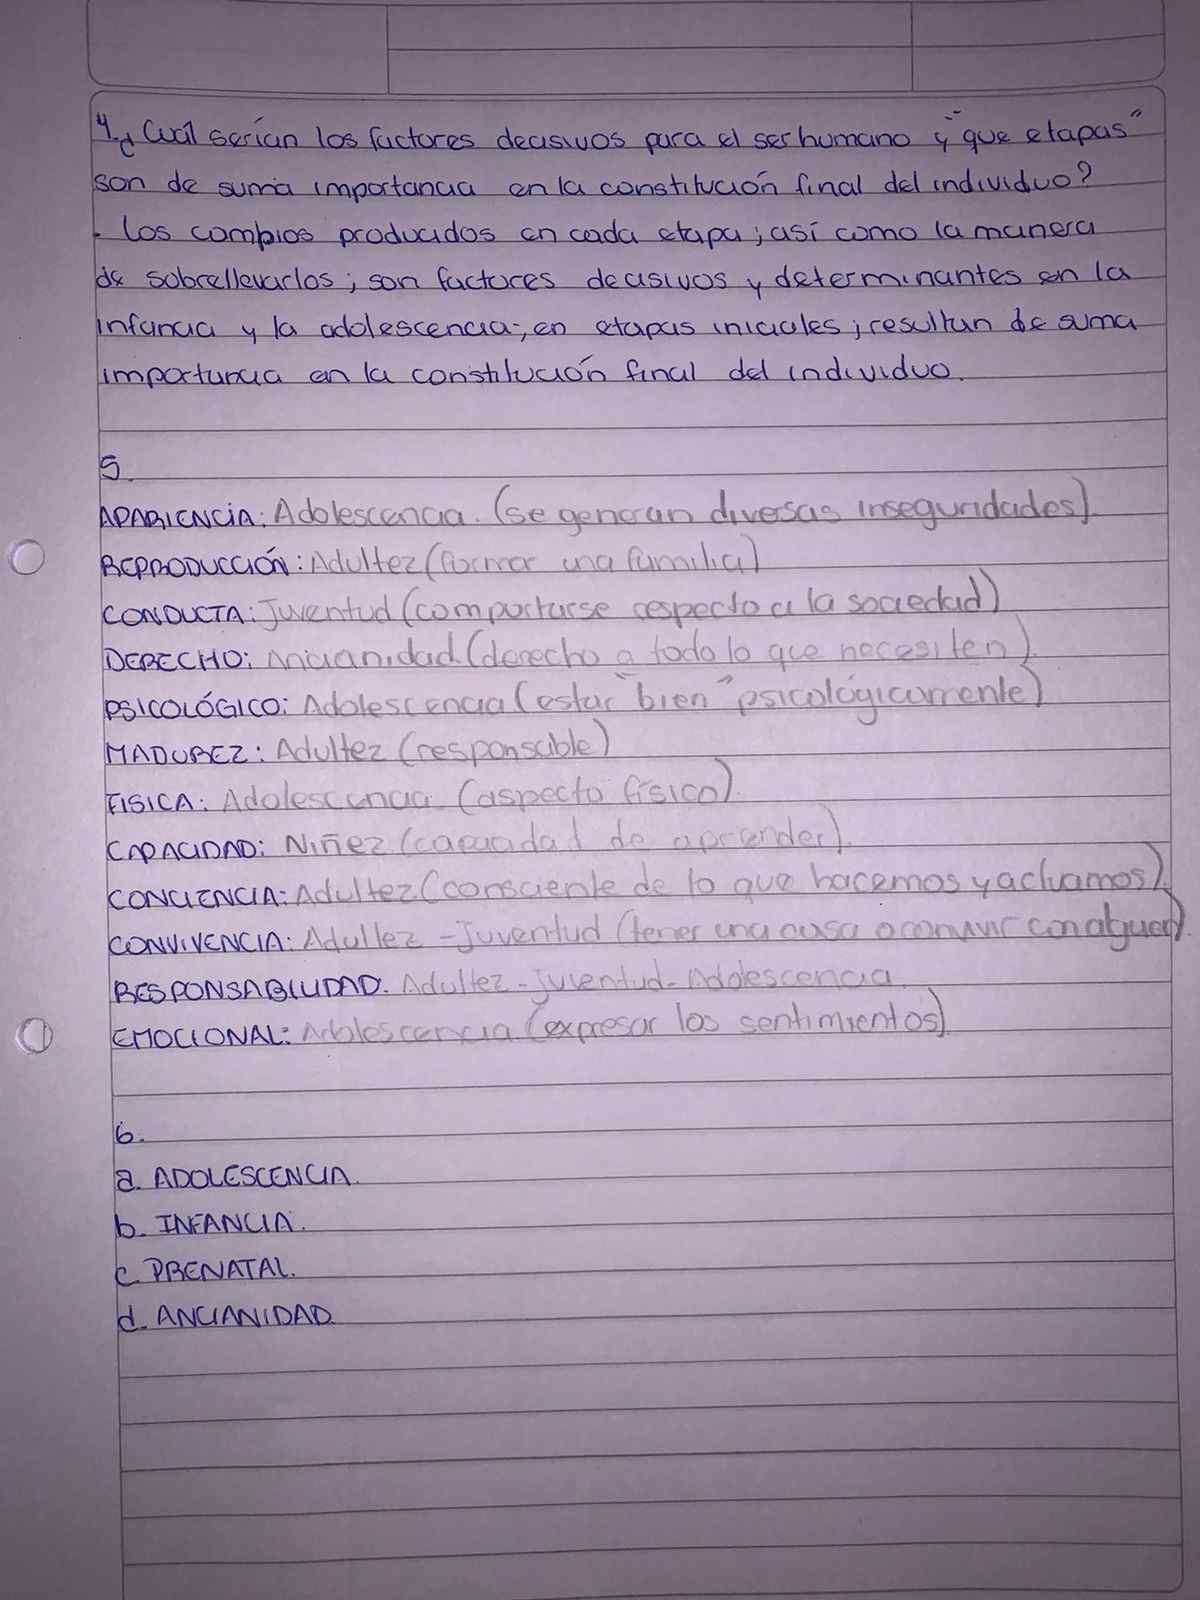 4¿Cuál serían los factores decisivos para el ser humano y "que etapas"
son de suma importancia en la constitución final del individuo?
. Los cambios producidos en cada etapa; así como la manera
de sobrellevarlos; son factores decisivos y determinantes en la
infancia y la adolescencia; en etapas iniciales; resultan de suma
importancia en la constitución final del individuo.
5.
APARIENCIA: Adolescencia. (se generan diversas inseguridades).
REPRODUCCIÓN: Adultez (formar una familia)
CONDUCTA: Juventud (comportarse respecto a la sociedad)
DERECHO: Ancianidad (derecho a todo lo que necesiten).
PSICOLÓGICO: Adolescencia (estar "bien" psicológicamente)
MADUREZ: Adultez (responsable)
FISICA: Adolescencia (aspecto físico).
CAPACIDAD: Niñez (capacidad de aprender).
CONCIENCIA: Adultez (consciente de lo que hacemos y actuamos).
CONVIVENCIA: Adultez - Juventud (tener una casa o convivir con alguien).
RESPONSABILIDAD. Adultez - Juventud - Adolescencia.
EMOCIONAL: Adolescencia (expresar los sentimientos)
6.
a. ADOLESCENCIA.
b. INFANCIA.
c. PRENATAL.
d. ANCIANIDAD.